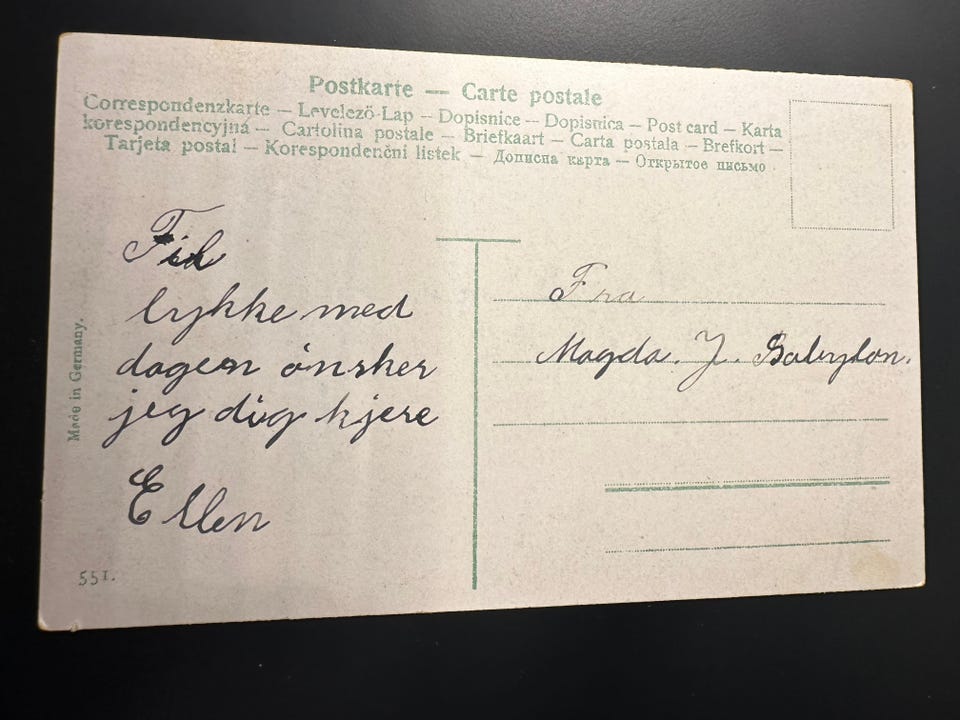 Postkarte — Carte postale
Correspondenzkarte — Levelező-Lap — Dopisnice — Dopisnica — Post card — Karta
korespondencyjna — Cartolina postale — Briefkaart — Carta postala — Brefkort —
Tarjeta postal — Korespondenční listek — Дописна карта — Открытое письмо
Made in Germany.
Til
lykke med
dagen ønsker
jeg dig kjere
Ellen
551.
Fra
Magda. J. Babylon.